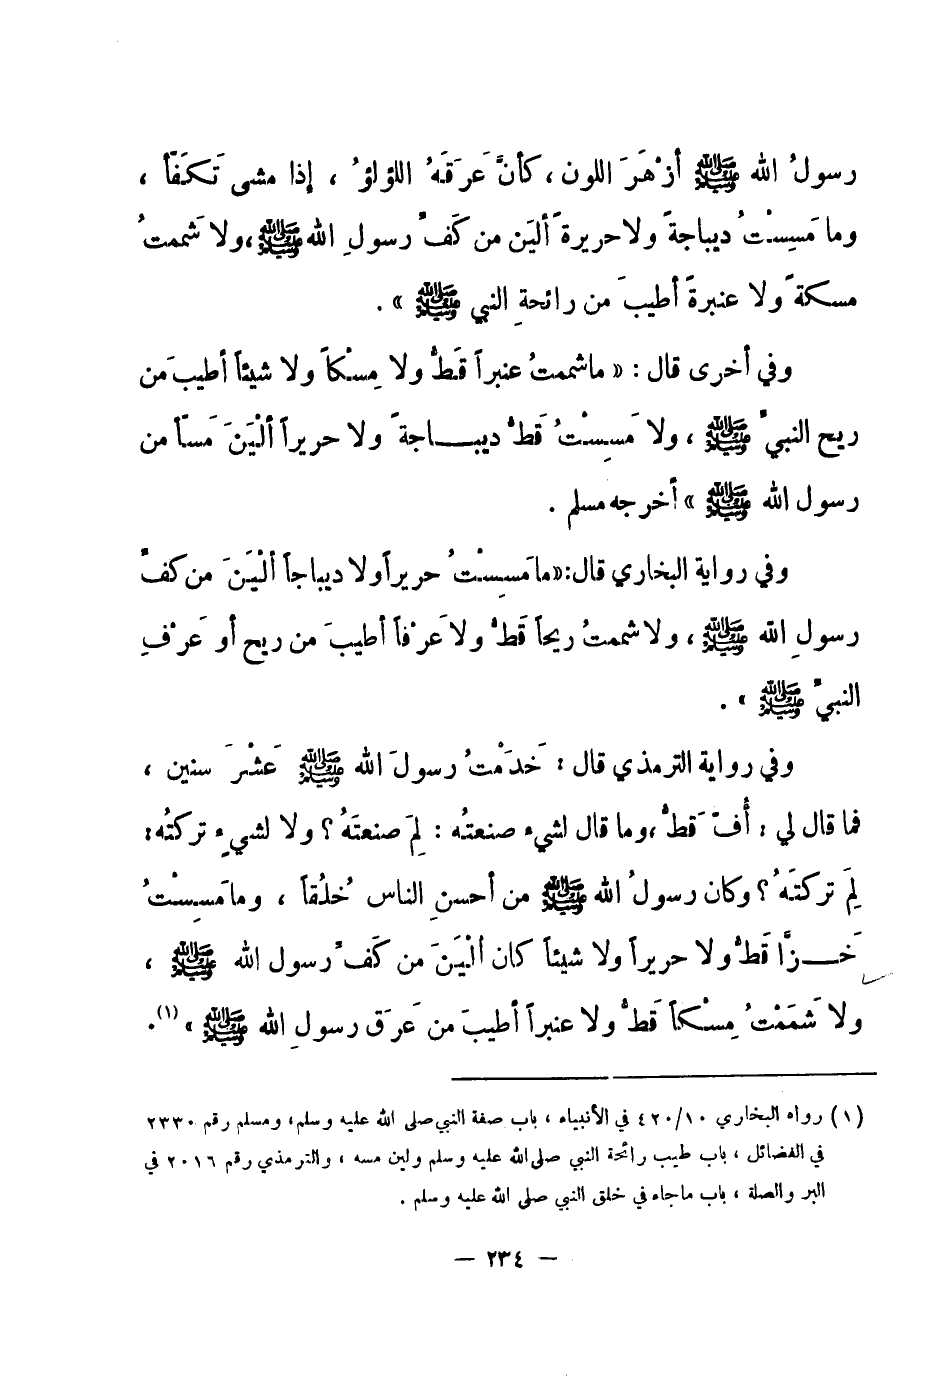 رسولُ الله ﷺ أزْهَرَ اللون ، كأنَّ عَرَقَهُ اللؤلؤُ ، إذا مشى تَكَفَّأ ،
وما مَسِسْتُ ديباجةً ولا حريرةً أليَن من كَفِّ رسولِ الله ﷺ ، ولا شَممتُ
مسكةً ولا عنبرةً أطيبَ من رائحةِ النبي ﷺ » .
وفي أخرى قال : « ما شممتُ عنبراً قَطُّ ولا مِسْكاً ولا شيئاً أطيبَ من
ريح النبيِّ ﷺ ، ولا مَسِسْتُ قطُّ ديبـــاجةً ولا حريراً أَلْيَنَ مَسّاً من
رسول الله ﷺ » أخرجه مسلم .
وفي رواية البخاري قال : « ما مَسِسْتُ حريراً ولا ديباجاً أَلْيَنَ من كفِّ
رسولِ الله ﷺ ، ولا شممتُ ريحاً قَطُّ ولا عَرْفاً أطيبَ من ريح أو عَرْفِ
النبيِّ ﷺ » .
وفي رواية الترمذي قال : خَدَمْتُ رسولَ الله ﷺ عَشْرَ سنين ،
فما قال لي : أُفٍّ قَطُّ ، وما قال لشيء صنعتُه : لِمَ صنعتَهُ ؟ ولا لشيءٍ تركتُه :
لِمَ تركتَهُ ؟ وكان رسولُ الله ﷺ من أحسنِ الناس خُلُقاً ، وما مَسِسْتُ
خَـــزًّا قَطُّ ولا حريراً ولا شيئاً كان أَلْيَنَ من كَفِّ رسول الله ﷺ ،
ولا شَمَمْتُ مِسْكاً قَطُّ ولا عنبراً أطيبَ من عَرَق رسولِ الله ﷺ » (١) .
(١) رواه البخاري ٤٢٠/١٠ في الأنبياء ، باب صفة النبي صلى الله عليه وسلم، ومسلم رقم ٢٣٣٠
في الفضائل ، باب طيب رائحة النبي صلى الله عليه وسلم ولين مسه ، والترمذي رقم ٢٠١٦ في
البر والصلة ، باب ما جاء في خلق النبي صلى الله عليه وسلم .
— ٢٣٤ —